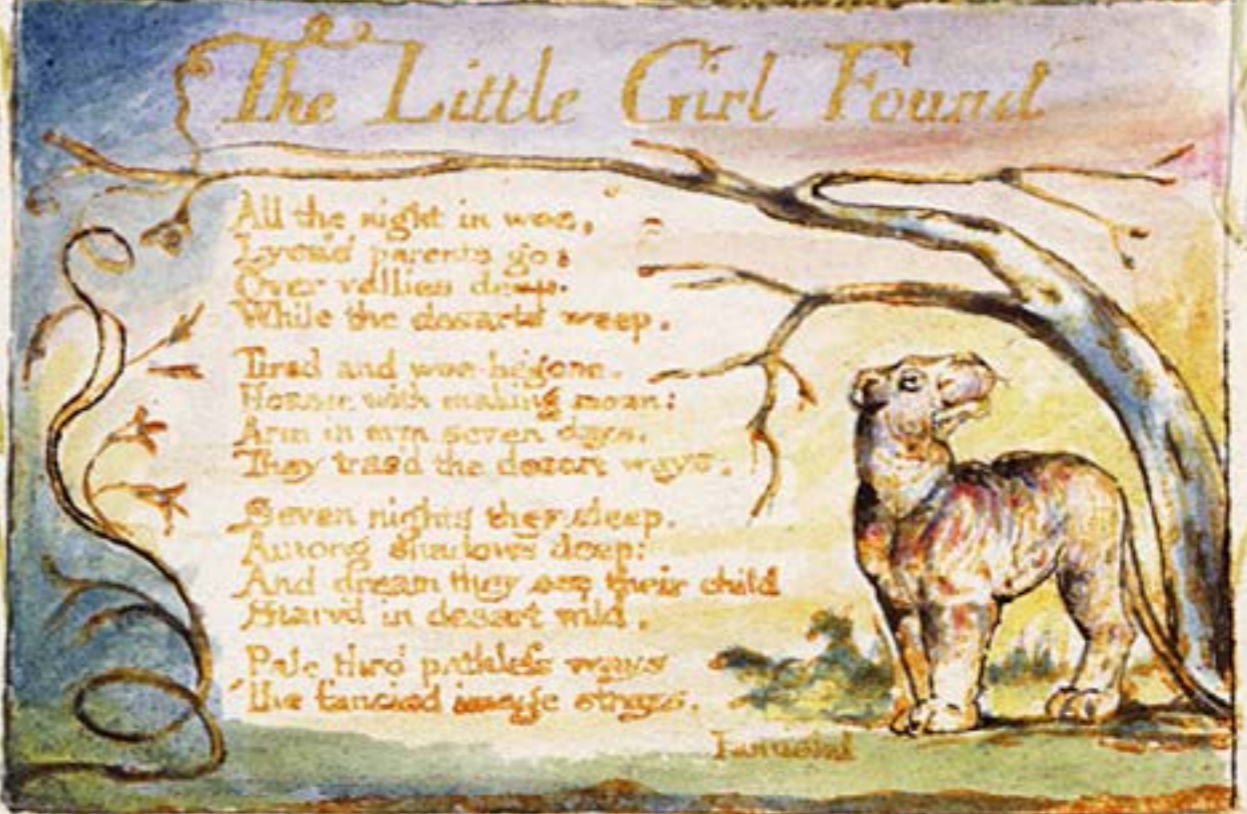 The Little Girl Found
All the night in woe,
Lyca's parents go:
Over vallies deep.
While the desarts weep.
Tired and woe-begone.
Hoarse with making moan:
Arm in arm seven days.
They trac'd the desart ways.
Seven nights they sleep.
Among shadows deep:
And dream they see their child
Starv'd in desart wild.
Pale thro' pathless ways
The fancied image strays.
Famish'd